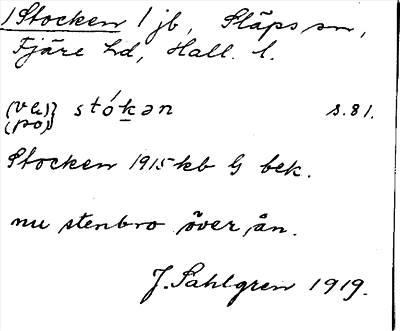 /Stocken / jb, Släps sn,
Fjäre hd, Hall. l.
(va)} stó̱kən s. 81.
(po)}
Stocken 1915 kb G bek.
nu stenbro över ån.
J. Sahlgren 1919.